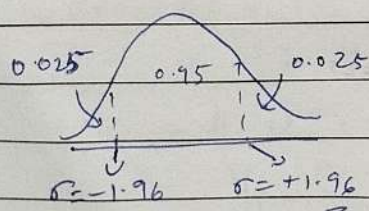 0.025 0.95 0.025
σ=-1.96 σ=+1.96